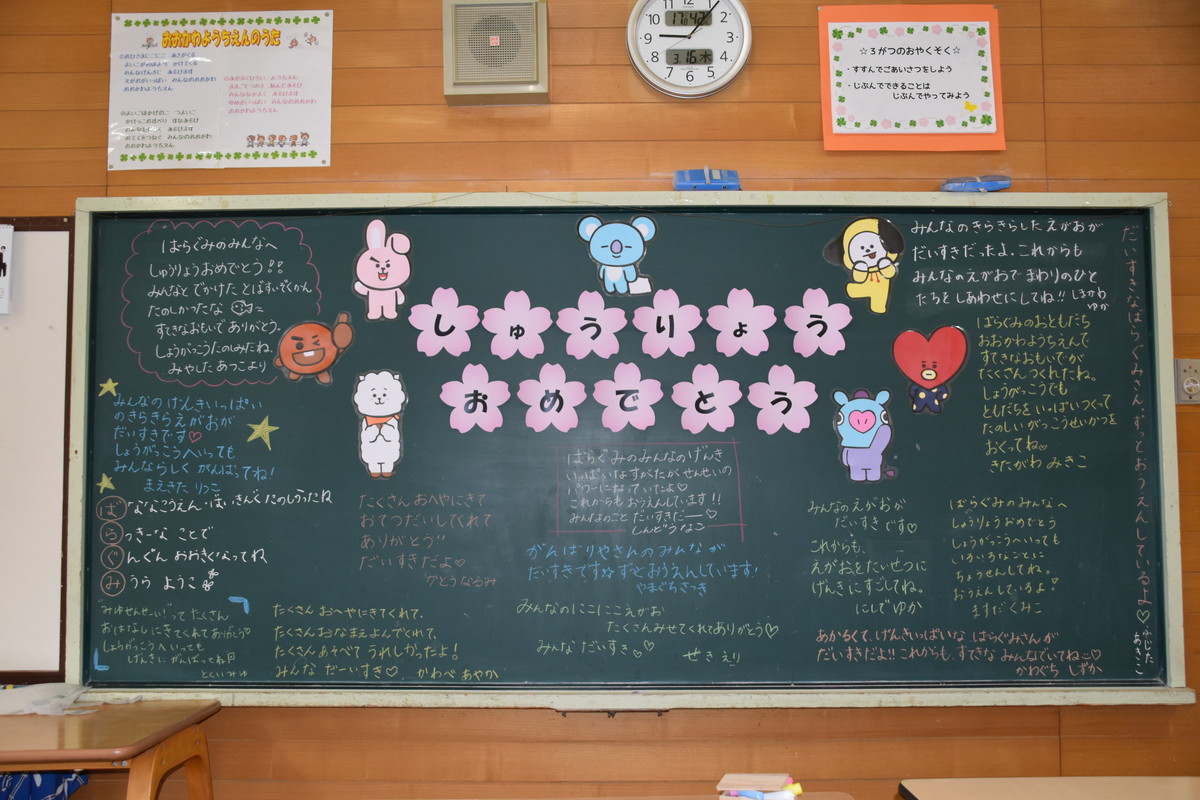 おおかわようちえんのうた
☆3がつのおやくそく☆
・すすんでごあいさつをしよう
・じぶんでできることは
じぶんでやってみよう
10
11
12
1
2
3
4
5
6
7
8
9
17:42
3.16.木
しゅうりょう
おめでとう
ばらぐみのみんなへ
しゅうりょうおめでとう!!
みんなと でかけた とばすいぞくかん
たのしかったな
すてきなおもいで ありがとう。
しょうがっこうたのしみだね。
みやした あつこより
みんなの げんきいっぱい
のきらきらえがおが
だいすきです♡
しょうがっこうへいっても
みんならしく がんばってね!
まえきた りつこ
らっきーな ことで
ぐんぐん おおきくなってね
みうら ようこ
おはなしにきてくれてありがとう
しょうがっこうへ いっても
げんきに がんばってね
とくい みゆ
たくさん おへやにきてくれて、
たくさん おなまえよんでくれて、
たくさん あそべて うれしかったよ!
みんな だーいすき♡ かわべ あやか
たくさん あへやにきて
おてつだいしてくれて
ありがとう!!
だいすきだよ♡
ばらぐみのみんなのげんき
いっぱいな すがたが せんせいの
パワーになっていたよ♡
これからも おうえんしています!!
みんなのこと だいすきだー♡
がんばりやさんの みんなが
だいすきです☆ずっとおうえんしています!
やまぐちさつき
みんなのにこにこえがお
たくさんみせてくれてありがとう♡
みんな だいすき
せき えり
みんなのきらきらした えがおが
だいすきだったよ。これからも
みんなのえがおで まわりのひと
たちを しあわせにしてね!! しまかわ
ゆか
ばらぐみのおともだち
おおかわようちえんで
すてきなおもいでが
たくさん つくれたね。
しょうがっこうでも
ともだちを いっぱいつくって
たのしい がっこうせいかつを
おくってね。
きたがわ みきこ
みんなのえがおが
だいすき です♡
これからも、
えがおをたいせつに
げんきに すごしてね。
にしで ゆか
ばらぐみの みんなへ
しゅうりょうおめでとう
しょうがっこうへいっても
いろいろなことに
ちょうせんしてね。
おうえんしているよ!
ますだ くみこ
あかるくて、げんきいっぱいな ばらぐみさんが
だいすきだよ!! これからも、すてきな みんなでいてね♡
かわぐち しずか
だいすきなばらぐみさん、ずっとおうえんしているよ♡ ふじた あきこ